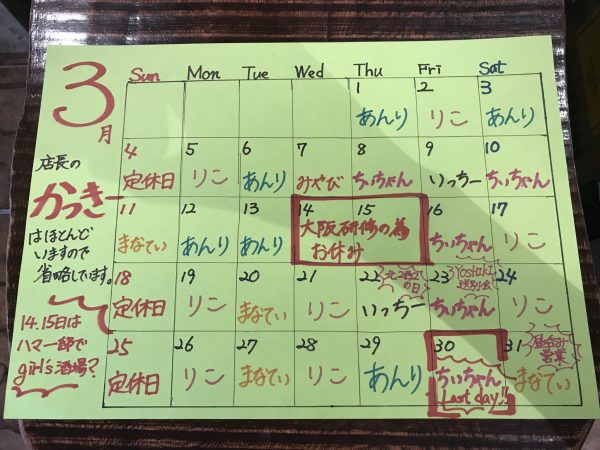 3月
Sun Mon Tue Wed Thu Fri Sat
1 2 3
あんり りこ あんり
4 5 6 7 8 9 10
定休日 りこ あんり みやび ちぃちゃん いっちー ちぃちゃん
11 12 13 14 15 16 17
まなてぃ あんり あんり 大阪研修の為 ちぃちゃん りこ
お休み
18 19 20 21 22 23 24
の日
YOSHIKI
送別会
定休日 りこ まなてぃ りこ いっちー ちぃちゃん りこ
25 26 27 28 29 30 31
昼呑み
営業
定休日 りこ まなてぃ りこ あんり ちぃちゃん まなてぃ
Last day!!
店長の
かつきー
はほとんど
いますので
省略しています。
14.15日は
ハマ一郎で
girl's酒場?